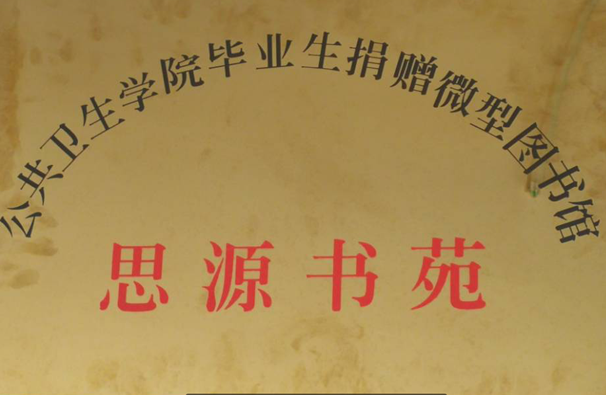 公共卫生学院毕业生捐赠微型图书馆
思源书苑